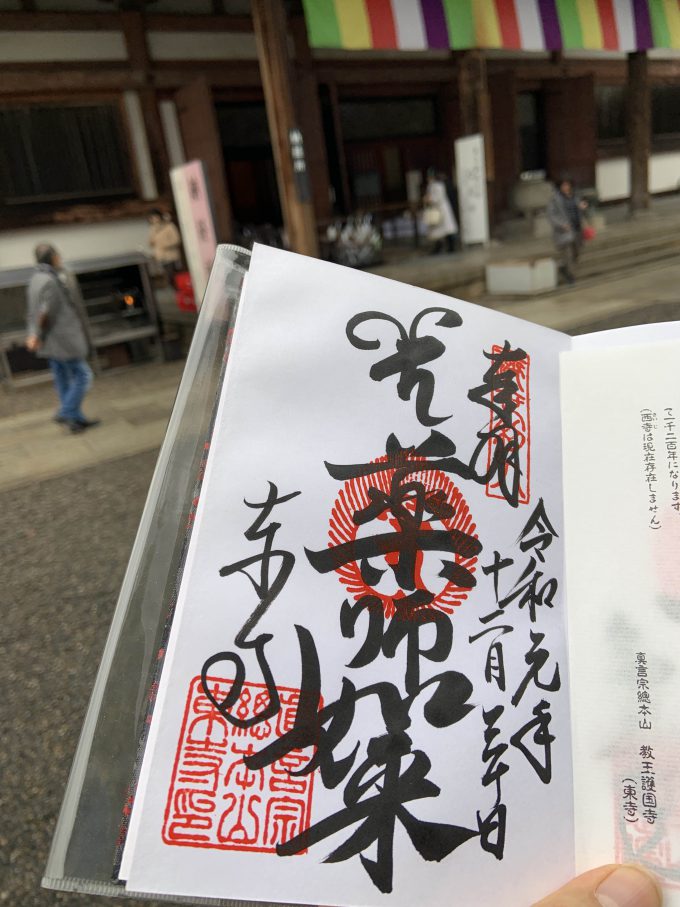 奉拝
令和元年
十二月三十日
薬師如来
東寺
眞言宗
總本山
東寺印
て一千二百年になります。
(西寺は現在存在しません)
さいじ
真言宗總本山 教王護国寺
(東寺)